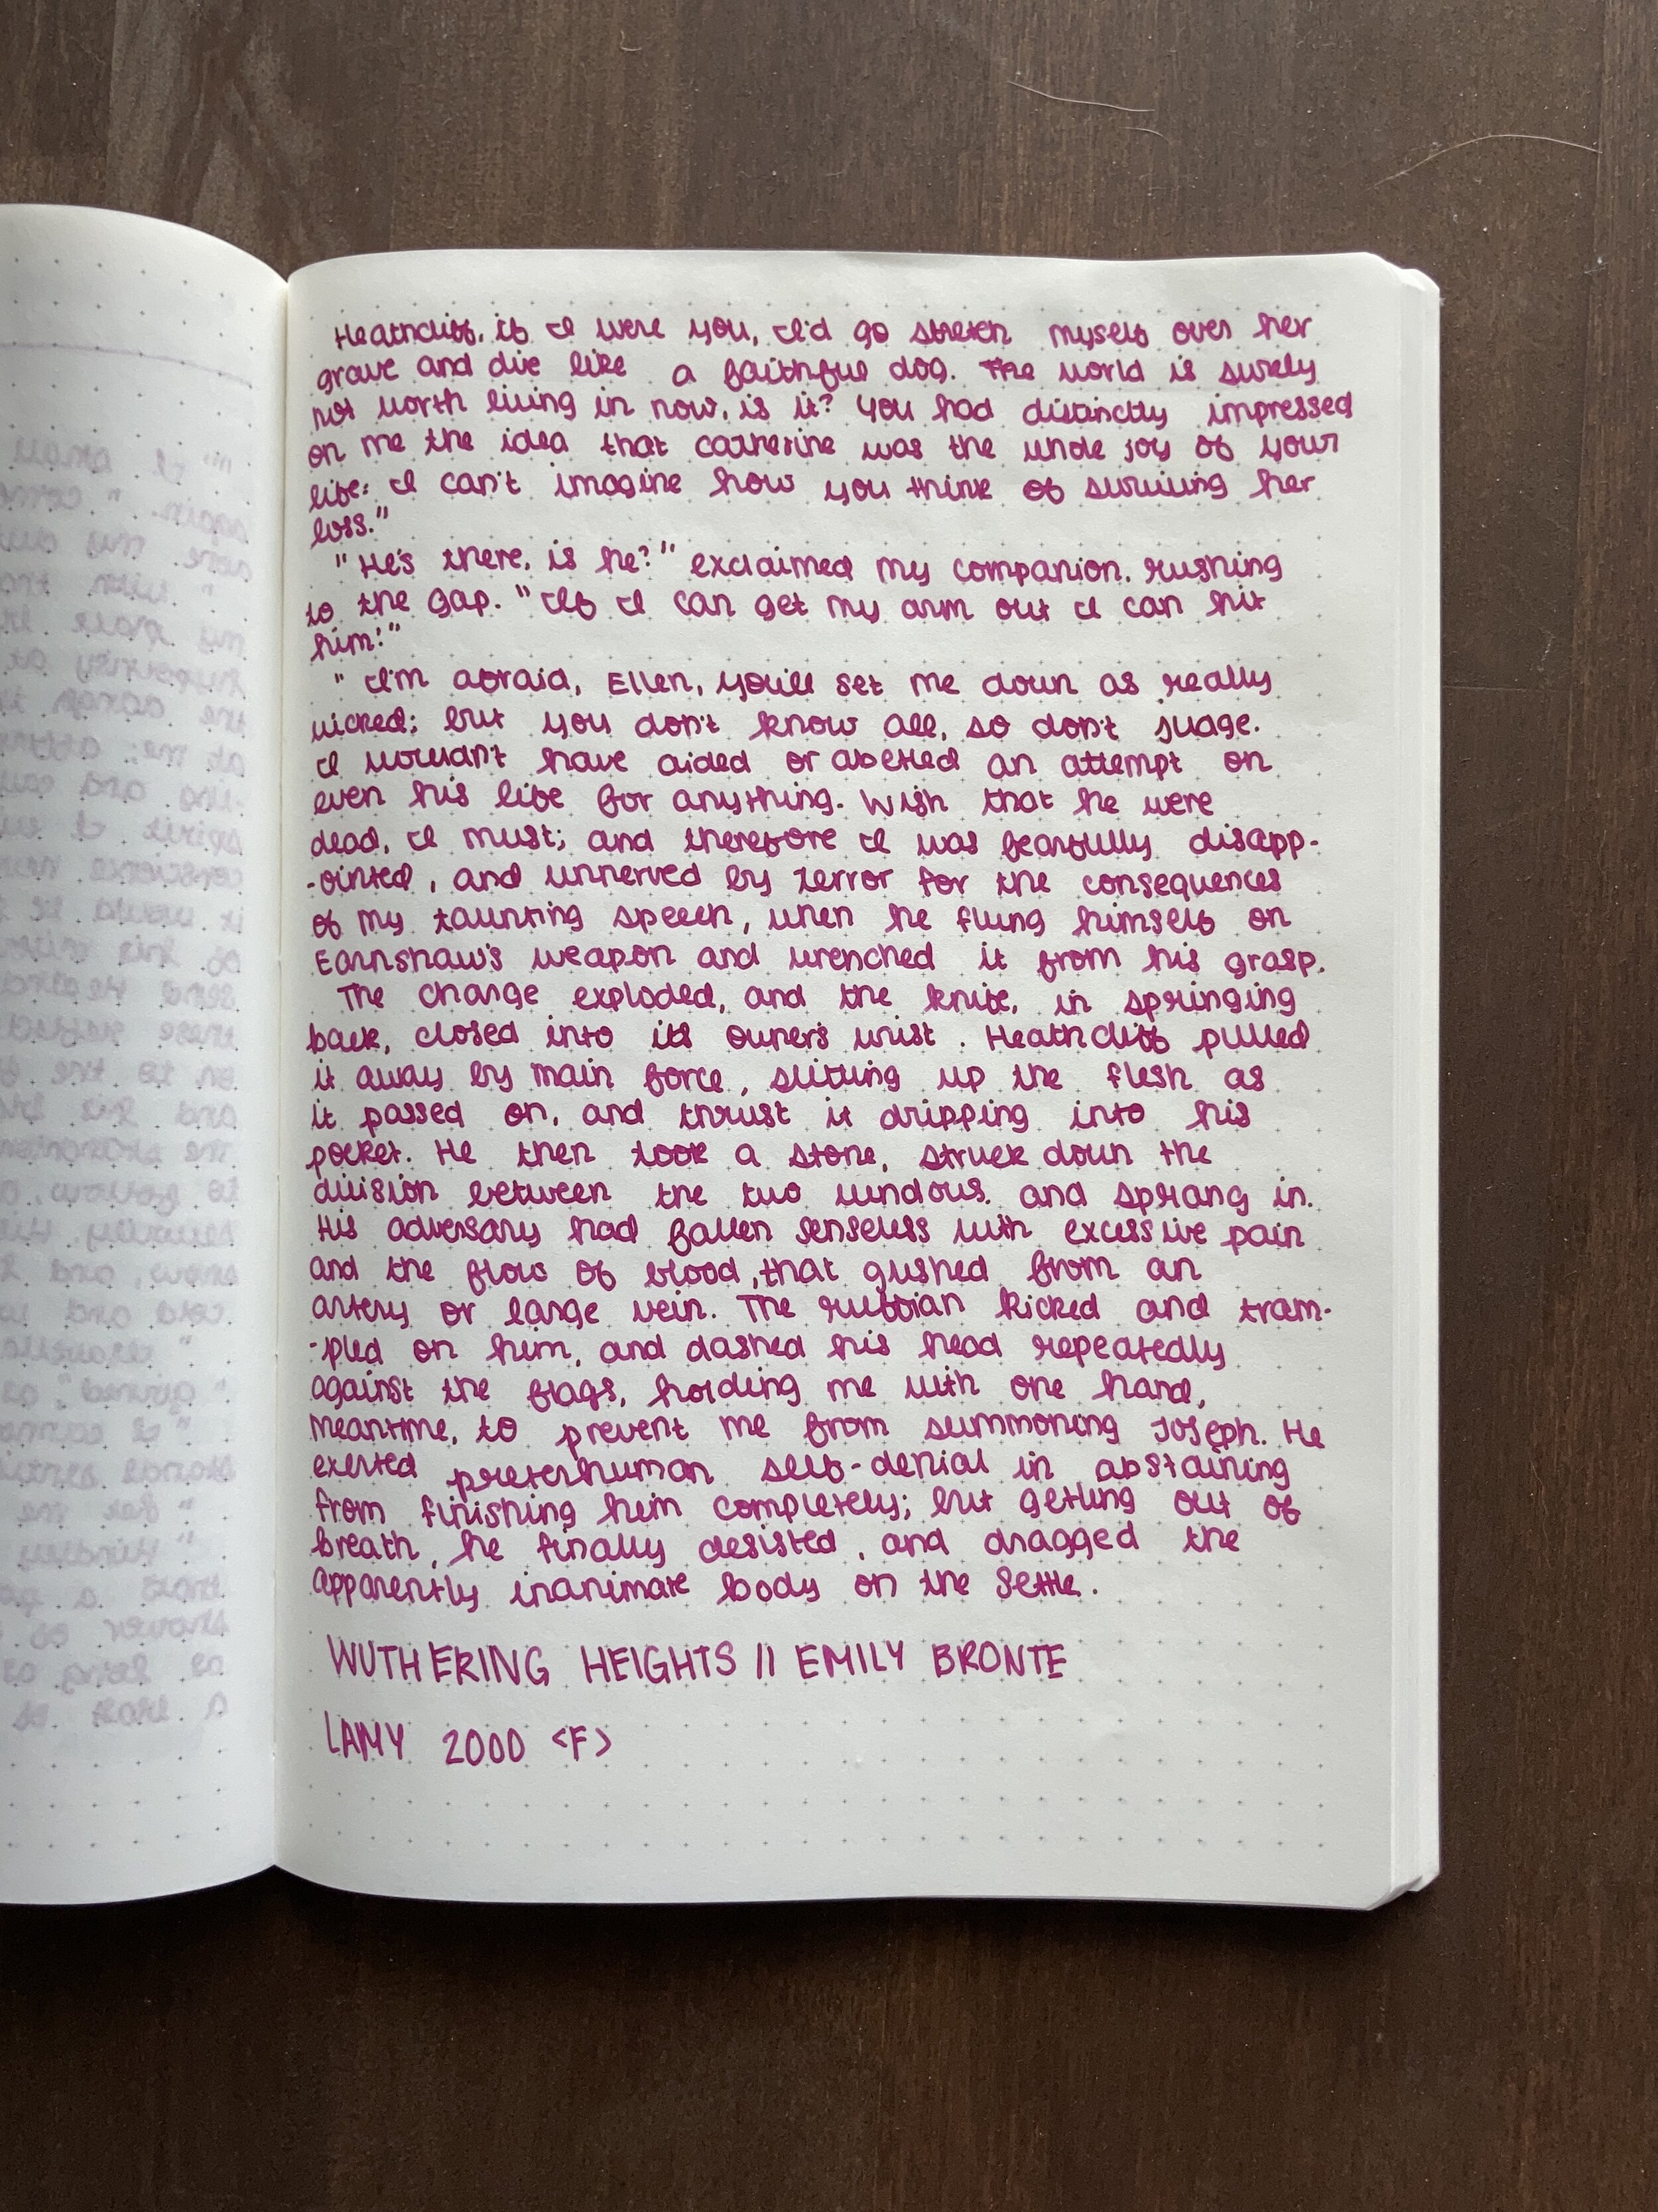 Heathcliff, if I were you, I'd go stretch myself over her
grave and die like a faithful dog. The world is surely
not worth living in now, is it? You had distinctly impressed
on me the idea that Catherine was the whole joy of your
life: I can't imagine how you think of surviving her
loss."
"He's there, is he?" exclaimed my companion, rushing
to the gap. "If I can get my arm out I can hit
him!"
"I'm afraid, Ellen, you'll set me down as really
wicked; but you don't know all, so don't judge.
I wouldn't have aided or abetted an attempt on
even his life for anything. Wish that he were
dead, I must; and therefore I was fearfully disapp-
-ointed, and unnerved by terror for the consequences
of my taunting speech, when he flung himself on
Earnshaw's weapon and wrenched it from his grasp.
The charge exploded, and the knife, in springing
back, closed into its owner's wrist. Heathcliff pulled
it away by main force, slitting up the flesh as
it passed on, and thrust it dripping into his
pocket. He then took a stone, struck down the
division between the two windows, and sprang in.
His adversary had fallen senseless with excessive pain
and the flow of blood, that gushed from an
artery or large vein. The ruffian kicked and tram-
-pled on him, and dashed his head repeatedly
against the flags, holding me with one hand,
meantime, to prevent me from summoning Joseph. He
exerted preterhuman self-denial in abstaining
from finishing him completely; but getting out of
breath, he finally desisted, and dragged the
apparently inanimate body on the settle.
WUTHERING HEIGHTS // EMILY BRONTE
LAMY 2000 <F>